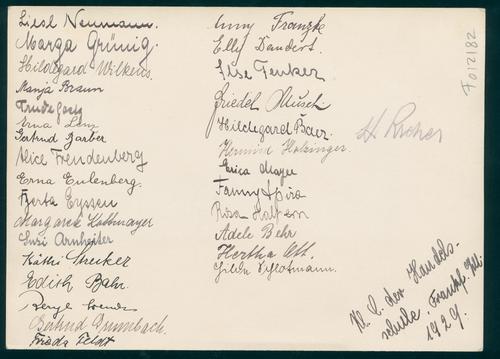 Liesl Neumann.
Marga Grünig.
Hildegard Wilkens.
Manja Braun
Trude
Erna Lenz
Gertrud Barber
Alice Freudenberg
Erna Eulenberg.
Herta Eyssen
Margarete Kollmayer
Susi Arnheiter
Käthi Strecker
Edith Bähr.
Gertrud Grumbach.
Frieda Feldt
Anny Franzke
Elly Dandert.
Ilse Fenker
Friedel Musch
Hildegard Baer.
Hermine Holzinger
Erica Mayer
Fanny Spiro
Rosa Halpern
Adele Behr
Hertha Ott.
Gilda Schlotmann.
F012/82
der Handels-
schule, Frankf.
1929.